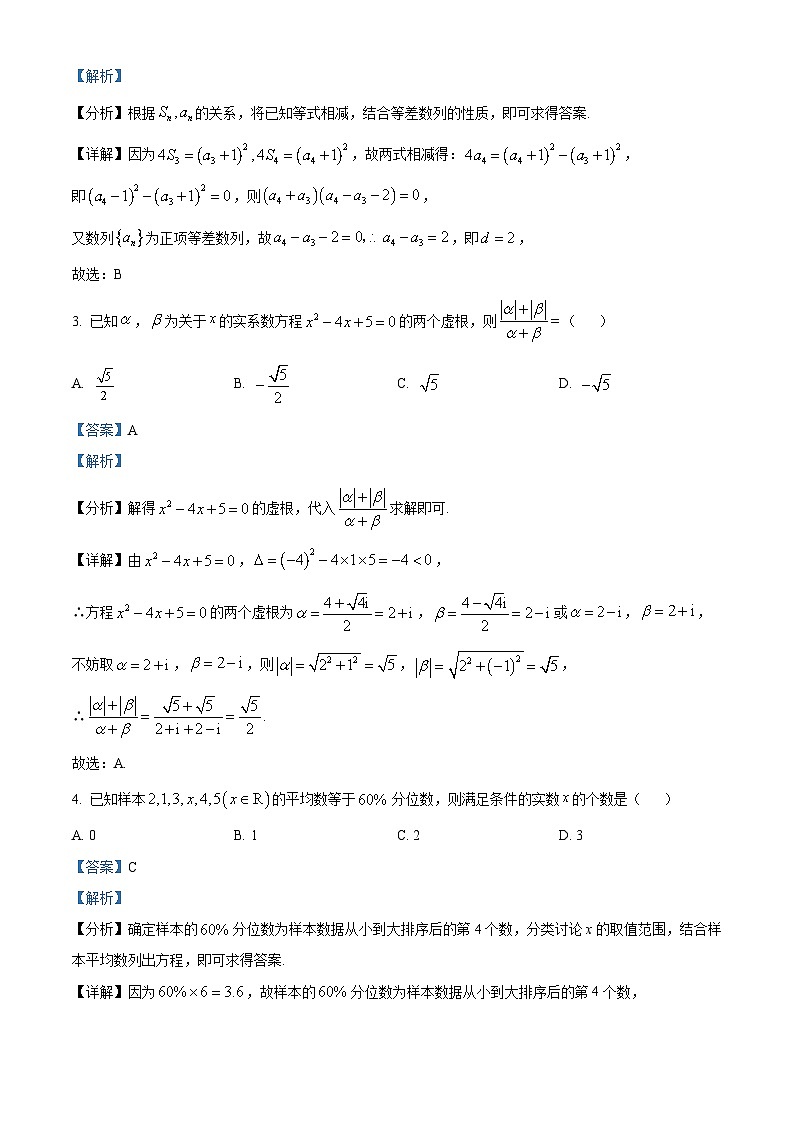 【解析】
【分析】根据 $S_n, a_n$ 的关系，将已知等式相减，结合等差数列的性质，即可求得答案.
【详解】因为 $4S_3=(a_3+1)^2, 4S_4=(a_4+1)^2$，故两式相减得：$4a_4=(a_4+1)^2-(a_3+1)^2$，
即 $(a_4-1)^2-(a_3+1)^2=0$，则 $(a_4+a_3)(a_4-a_3-2)=0$，
又数列 $\{a_n\}$ 为正项等差数列，故 $a_4-a_3-2=0, \therefore a_4-a_3=2$，即 $d=2$，
故选：B
3. 已知 $\alpha$，$\beta$ 为关于 $x$ 的实系数方程 $x^2-4x+5=0$ 的两个虚根，则 $\frac{|\alpha|+|\beta|}{\alpha+\beta}=$（　　）
A. $\frac{\sqrt{5}}{2}$ B. $-\frac{\sqrt{5}}{2}$ C. $\sqrt{5}$ D. $-\sqrt{5}$
【答案】A
【解析】
【分析】解得 $x^2-4x+5=0$ 的虚根，代入 $\frac{|\alpha|+|\beta|}{\alpha+\beta}$ 求解即可.
【详解】由 $x^2-4x+5=0$，$\Delta=(-4)^2-4\times1\times5=-4<0$，
∴方程 $x^2-4x+5=0$ 的两个虚根为 $\alpha=\frac{4+\sqrt{4}i}{2}=2+i$，$\beta=\frac{4-\sqrt{4}i}{2}=2-i$ 或 $\alpha=2-i$，$\beta=2+i$，
不妨取 $\alpha=2+i$，$\beta=2-i$，则 $|\alpha|=\sqrt{2^2+1^2}=\sqrt{5}$，$|\beta|=\sqrt{2^2+(-1)^2}=\sqrt{5}$，
∴ $\frac{|\alpha|+|\beta|}{\alpha+\beta}=\frac{\sqrt{5}+\sqrt{5}}{2+i+2-i}=\frac{\sqrt{5}}{2}$.
故选：A.
4. 已知样本 $2,1,3,x,4,5(x\in\mathrm{R})$ 的平均数等于 $60\%$ 分位数，则满足条件的实数 $x$ 的个数是（　　）
A. 0 B. 1 C. 2 D. 3
【答案】C
【解析】
【分析】确定样本的 $60\%$ 分位数为样本数据从小到大排序后的第 4 个数，分类讨论 x 的取值范围，结合样
本平均数列出方程，即可求得答案.
【详解】因为 $60\%\times6=3.6$，故样本的 $60\%$ 分位数为样本数据从小到大排序后的第 4 个数，